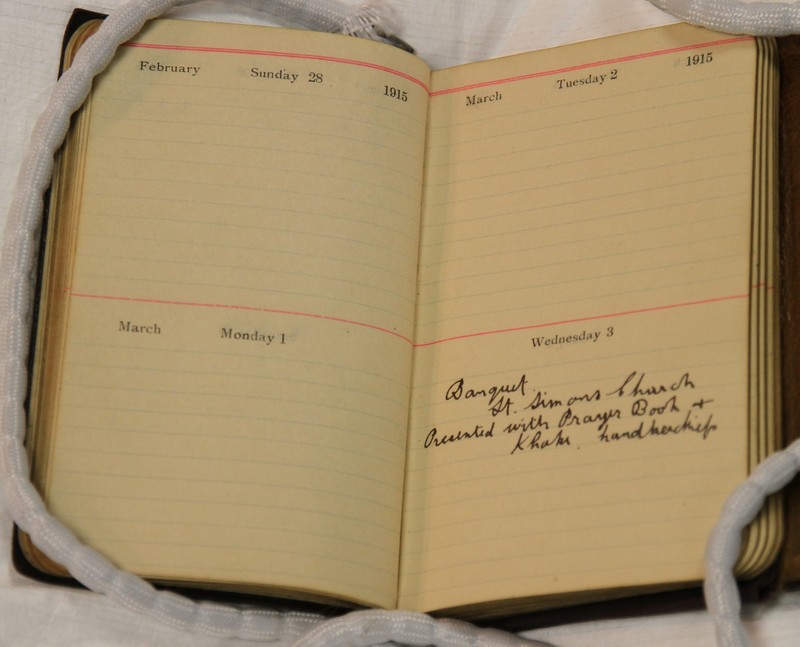 February Sunday 28
1915
March Monday 1
March Tuesday 2 1915
Wednesday 3
Banquet.
St. Simons Church
Presented with Prayer Book +
Khaki handkerchiefs